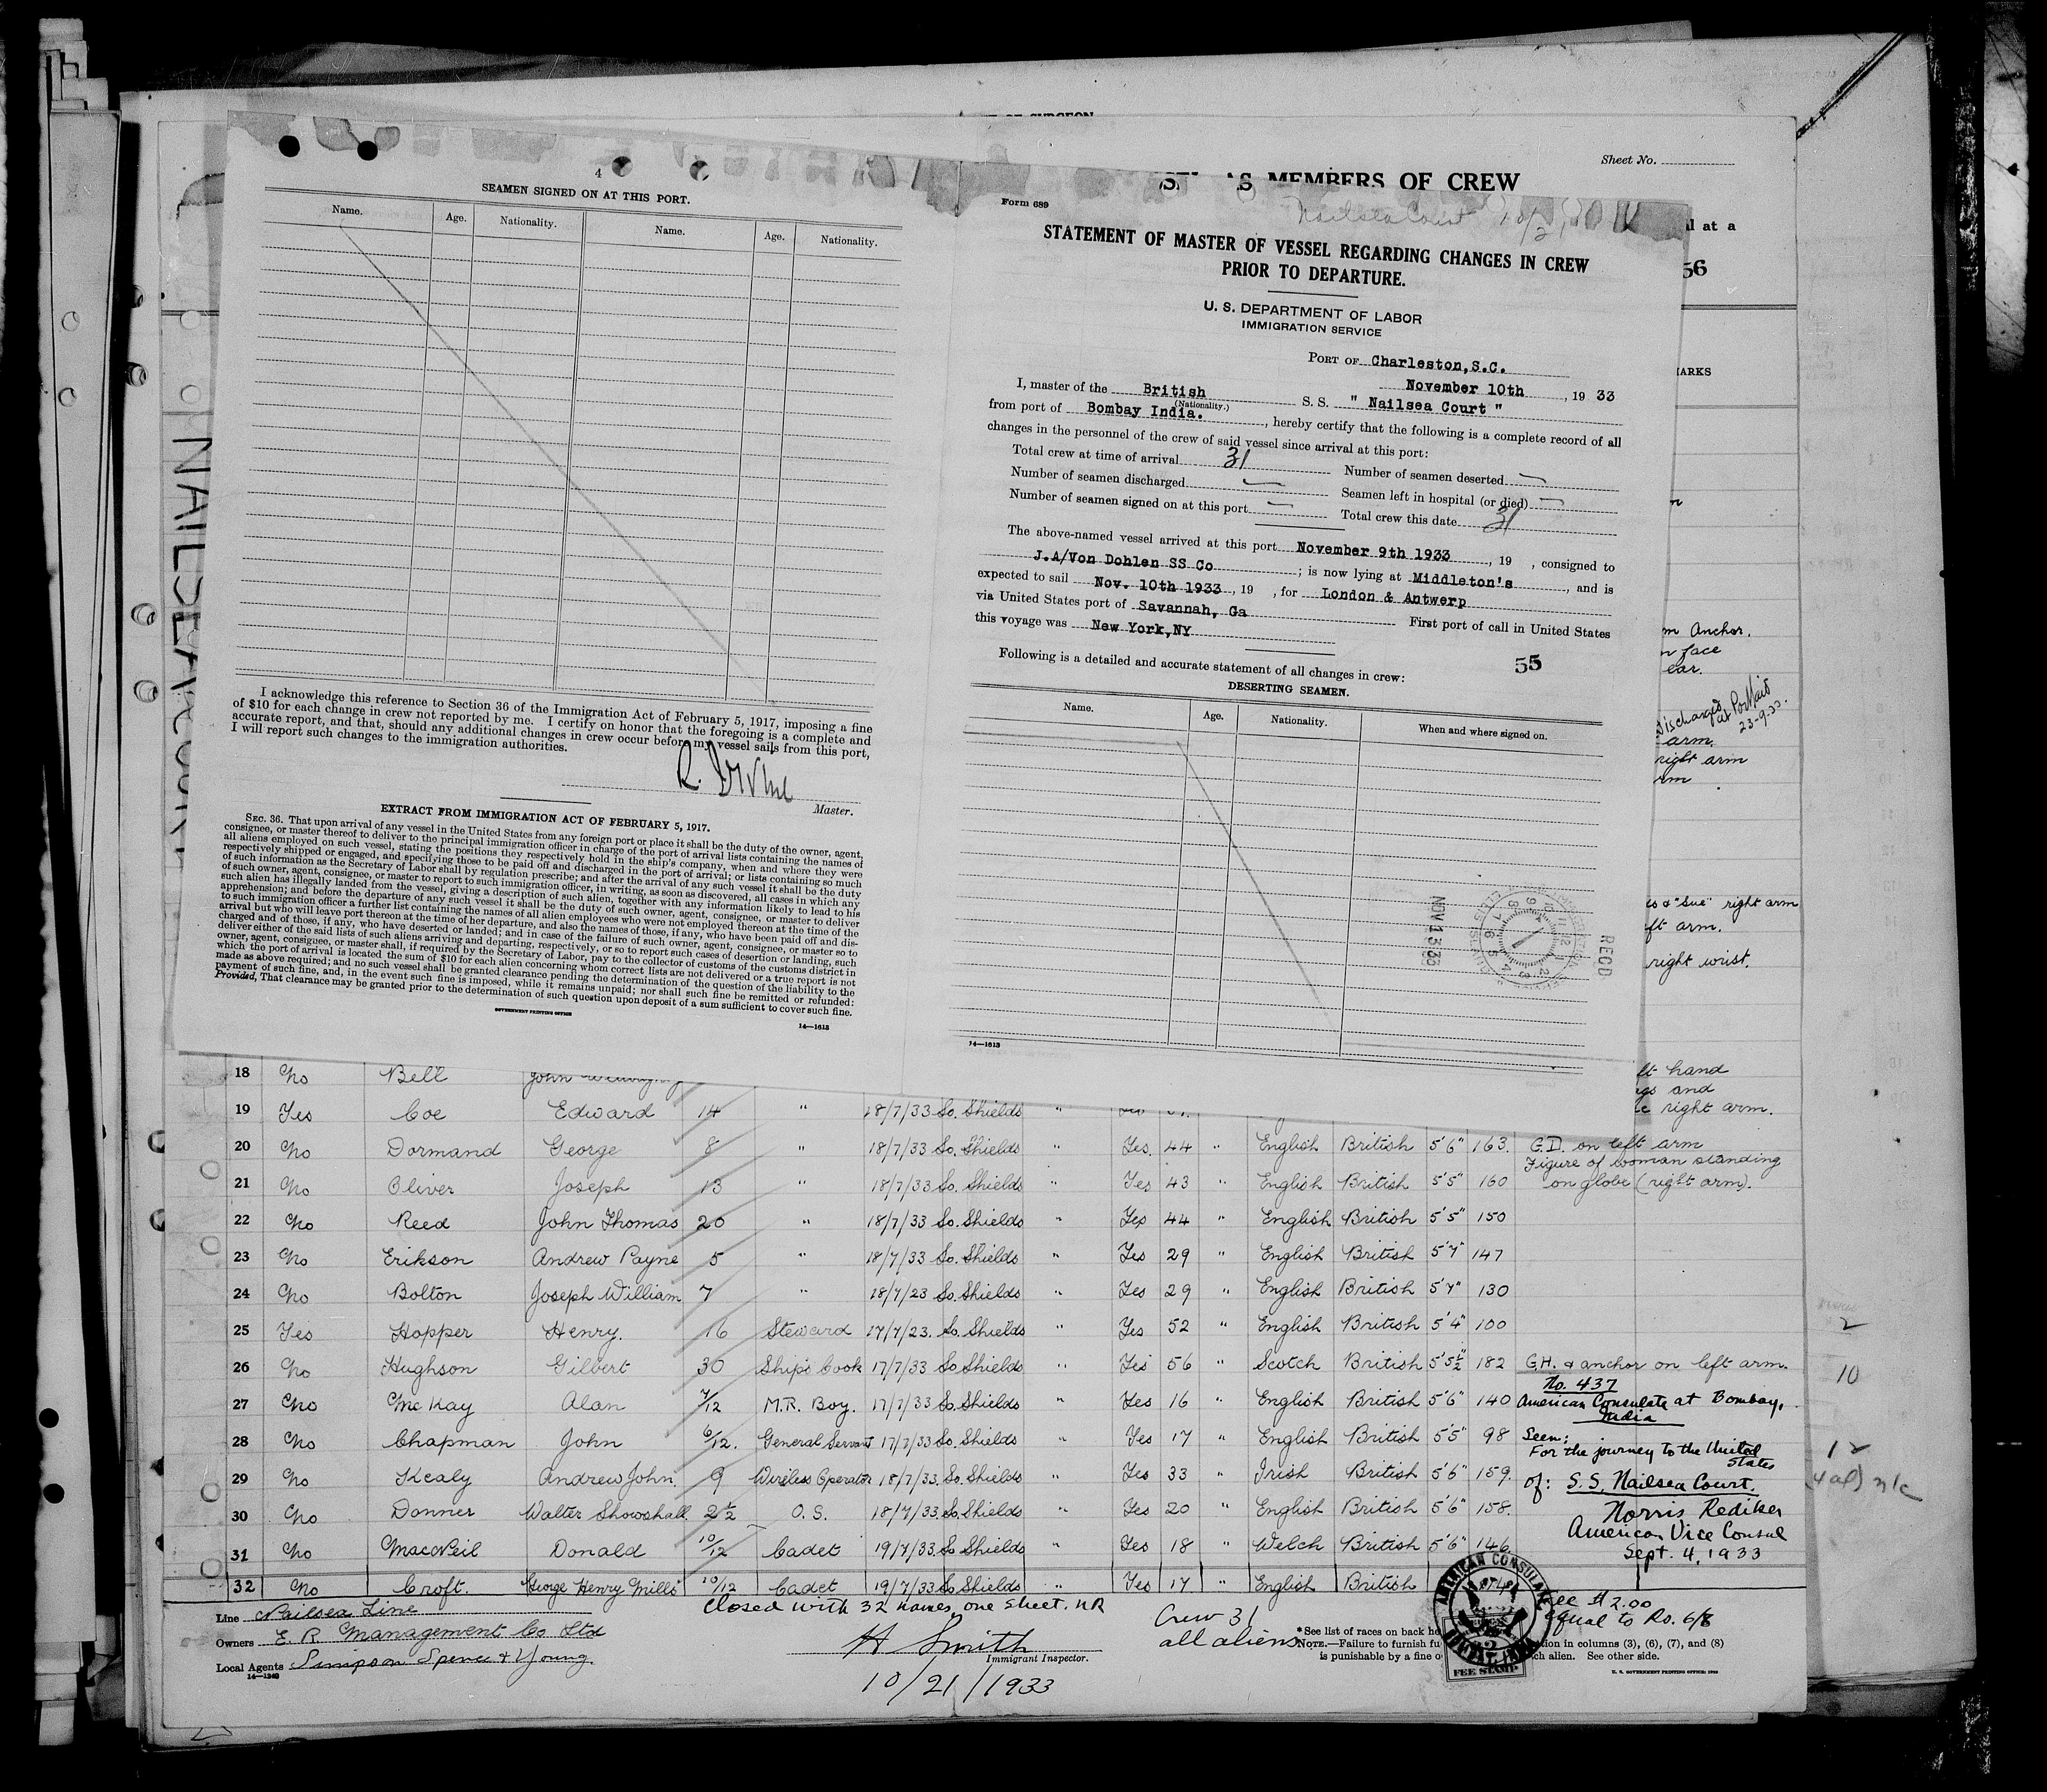 Sheet No.
MEMBERS OF CREW
4
SEAMEN SIGNED ON AT THIS PORT.
Name. Age. Nationality. Name. Age. Nationality.
I acknowledge this reference to Section 36 of the Immigration Act of February 5, 1917, imposing a fine
of $10 for each change in crew not reported by me. I certify on honor that the foregoing is a complete and
accurate report, and that, should any additional changes in crew occur before my vessel sails from this port,
I will report such changes to the immigration authorities.
Master.
EXTRACT FROM IMMIGRATION ACT OF FEBRUARY 5, 1917.
SEC. 36. That upon arrival of any vessel in the United States from any foreign port or place it shall be the duty of the owner, agent,
consignee, or master thereof to deliver to the principal immigration officer in charge of the port of arrival lists containing the names of
all aliens employed on such vessel, stating the positions they respectively hold in the ship's company, when and where they were
respectively shipped or engaged, and specifying those to be paid off and discharged in the port of arrival; or lists containing so much
of such information as the Secretary of Labor shall by regulation prescribe; and after the arrival of any such vessel it shall be the duty
of such owner, agent, consignee, or master to report to such immigration officer, in writing, as soon as discovered, all cases in which any
such alien has illegally landed from the vessel, giving a description of such alien, together with any information likely to lead to his
apprehension; and before the departure of any such vessel it shall be the duty of such owner, agent, consignee, or master to deliver
to such immigration officer a further list containing the names of all alien employees who were not employed thereon at the time of the
arrival but who will leave port thereon at the time of her departure, and also the names of those, if any, who have been paid off and dis-
charged and of those, if any, who have deserted or landed; and in case of the failure of such owner, agent, consignee, or master so to
deliver either of the said lists of such aliens arriving and departing, respectively, or so to report such cases of desertion or landing, such
owner, agent, consignee, or master shall, if required by the Secretary of Labor, pay to the collector of customs of the customs district in
which the port of arrival is located the sum of $10 for each alien concerning whom correct lists are not delivered or a true report is not
made as above required; and no such vessel shall be granted clearance pending the determination of the question of the liability to the
payment of such fine, and, in the event such fine is imposed, while it remains unpaid; nor shall such fine be remitted or refunded:
Provided, That clearance may be granted prior to the determination of such question upon deposit of a sum sufficient to cover such fine.
GOVERNMENT PRINTING OFFICE
14—1613
Form 689
Nailsea Court
STATEMENT OF MASTER OF VESSEL REGARDING CHANGES IN CREW
PRIOR TO DEPARTURE.
U. S. DEPARTMENT OF LABOR
IMMIGRATION SERVICE
PORT OF Charleston,S.C.
November 10th, 1933
I, master of the British S. S. " Nailsea Court "
(Nationality.)
from port of Bombay India., hereby certify that the following is a complete record of all
changes in the personnel of the crew of said vessel since arrival at this port:
Total crew at time of arrival 31 Number of seamen deserted —
Number of seamen discharged — Seamen left in hospital (or died) —
Number of seamen signed on at this port — Total crew this date 31
The above-named vessel arrived at this port November 9th 1933, 19 , consigned to
J.A/Von Dohlen SS Co; is now lying at Middleton's, and is
expected to sail Nov. 10th 1933, 19 , for London & Antwerp
via United States port of Savannah, Ga First port of call in United States
this voyage was New York,NY
55
Following is a detailed and accurate statement of all changes in crew:
DESERTING SEAMEN.
Name. Age. Nationality. When and where signed on.
REC'D
NOV 13 33
14—1613
NAILSEA COURT
l at a
56
ARKS
m Anchor.
n face
ear.
Discharged at Port Said
23-9-33.
arm.
right arm
rm
os & "Sue" right arm
ft arm.
right wrist.
ft hand
ngs and
right arm.
18 No Bell John
19 Yes Coe Edward 14 " 18/7/33 So. Shields "
20 No Dormand George 8 " 18/7/33 So. Shields " Yes. 44 " English British 5'6" 163. G.D. on left arm
Figure of woman standing
21 No Oliver Joseph 13 " 18/7/33 So. Shields " Yes 43 " English British 5'5" 160 on globe (right arm).
22 No Reed John Thomas 20 " 18/7/33 So. Shields " Yes 44 " English British 5'5" 150
23 No Erikson Andrew Payne 5 " 18/7/33 So. Shields " Yes 29 " English British 5'7" 147
24 No Bolton Joseph William 7 " 18/7/23 So. Shields " Yes 29 " English British 5'7" 130
25 Yes Hopper Henry. 16 Steward 17/7/23. So. Shields " Yes 52 " English British 5'4" 100
26 No Hughson Gilbert 30 Ship's Cook 17/7/33 So Shields " Yes 56 " Scotch British 5'5½" 182 G.H. & anchor on left arm.
No. 437
27 No McKay Alan 7/12 M.R. Boy. 17/7/33 So. Shields " Yes 16 " English British 5'6" 140 American Consulate at Bombay,
India
28 No Chapman John 6/12. General Servant 17/7/33 So. Shields " Yes 17 " English British 5'5" 98 Seen:
For the journey to the United
States
29 No Kealy Andrew John. 9 Wireless Operator 18/7/33. So. Shields " Yes 33 " Irish British 5'6" 159.
of: S.S. Nailsea Court.
30 No Donner Walter Showshall. 2½ O.S. 18/7/33. So. Shields " Yes 20 " English British 5'6" 158. Norris Rediker
American Vice Consul
31 No MacNeil Donald 10/12 Cadet 19/7/33. So Shields " Yes 18 " Welch British 5'6" 146.
Sept. 4, 1933
32 No Croft. George Henry Mills 10/12 Cadet 19/7/33 So Shields " Yes 17 " English British
2
10
12
Line Nailsea Line
Closed with 32 names, one sheet. NR
Owners E. R. Management Co Ltd
Local Agents Simpson Spence & Young.
14—1240
H Smith
Immigrant Inspector.
10/21/1933
Crew 31
all aliens
*See list of races on back
NOTE.—Failure to furnish tion in columns (3), (6), (7), and (8)
is punishable by a fine o ch alien. See other side.
AMERICAN CONSULATE
BOMBAY, INDIA
FEE STAMP
Fee $2.00
equal to Rs. 6/8